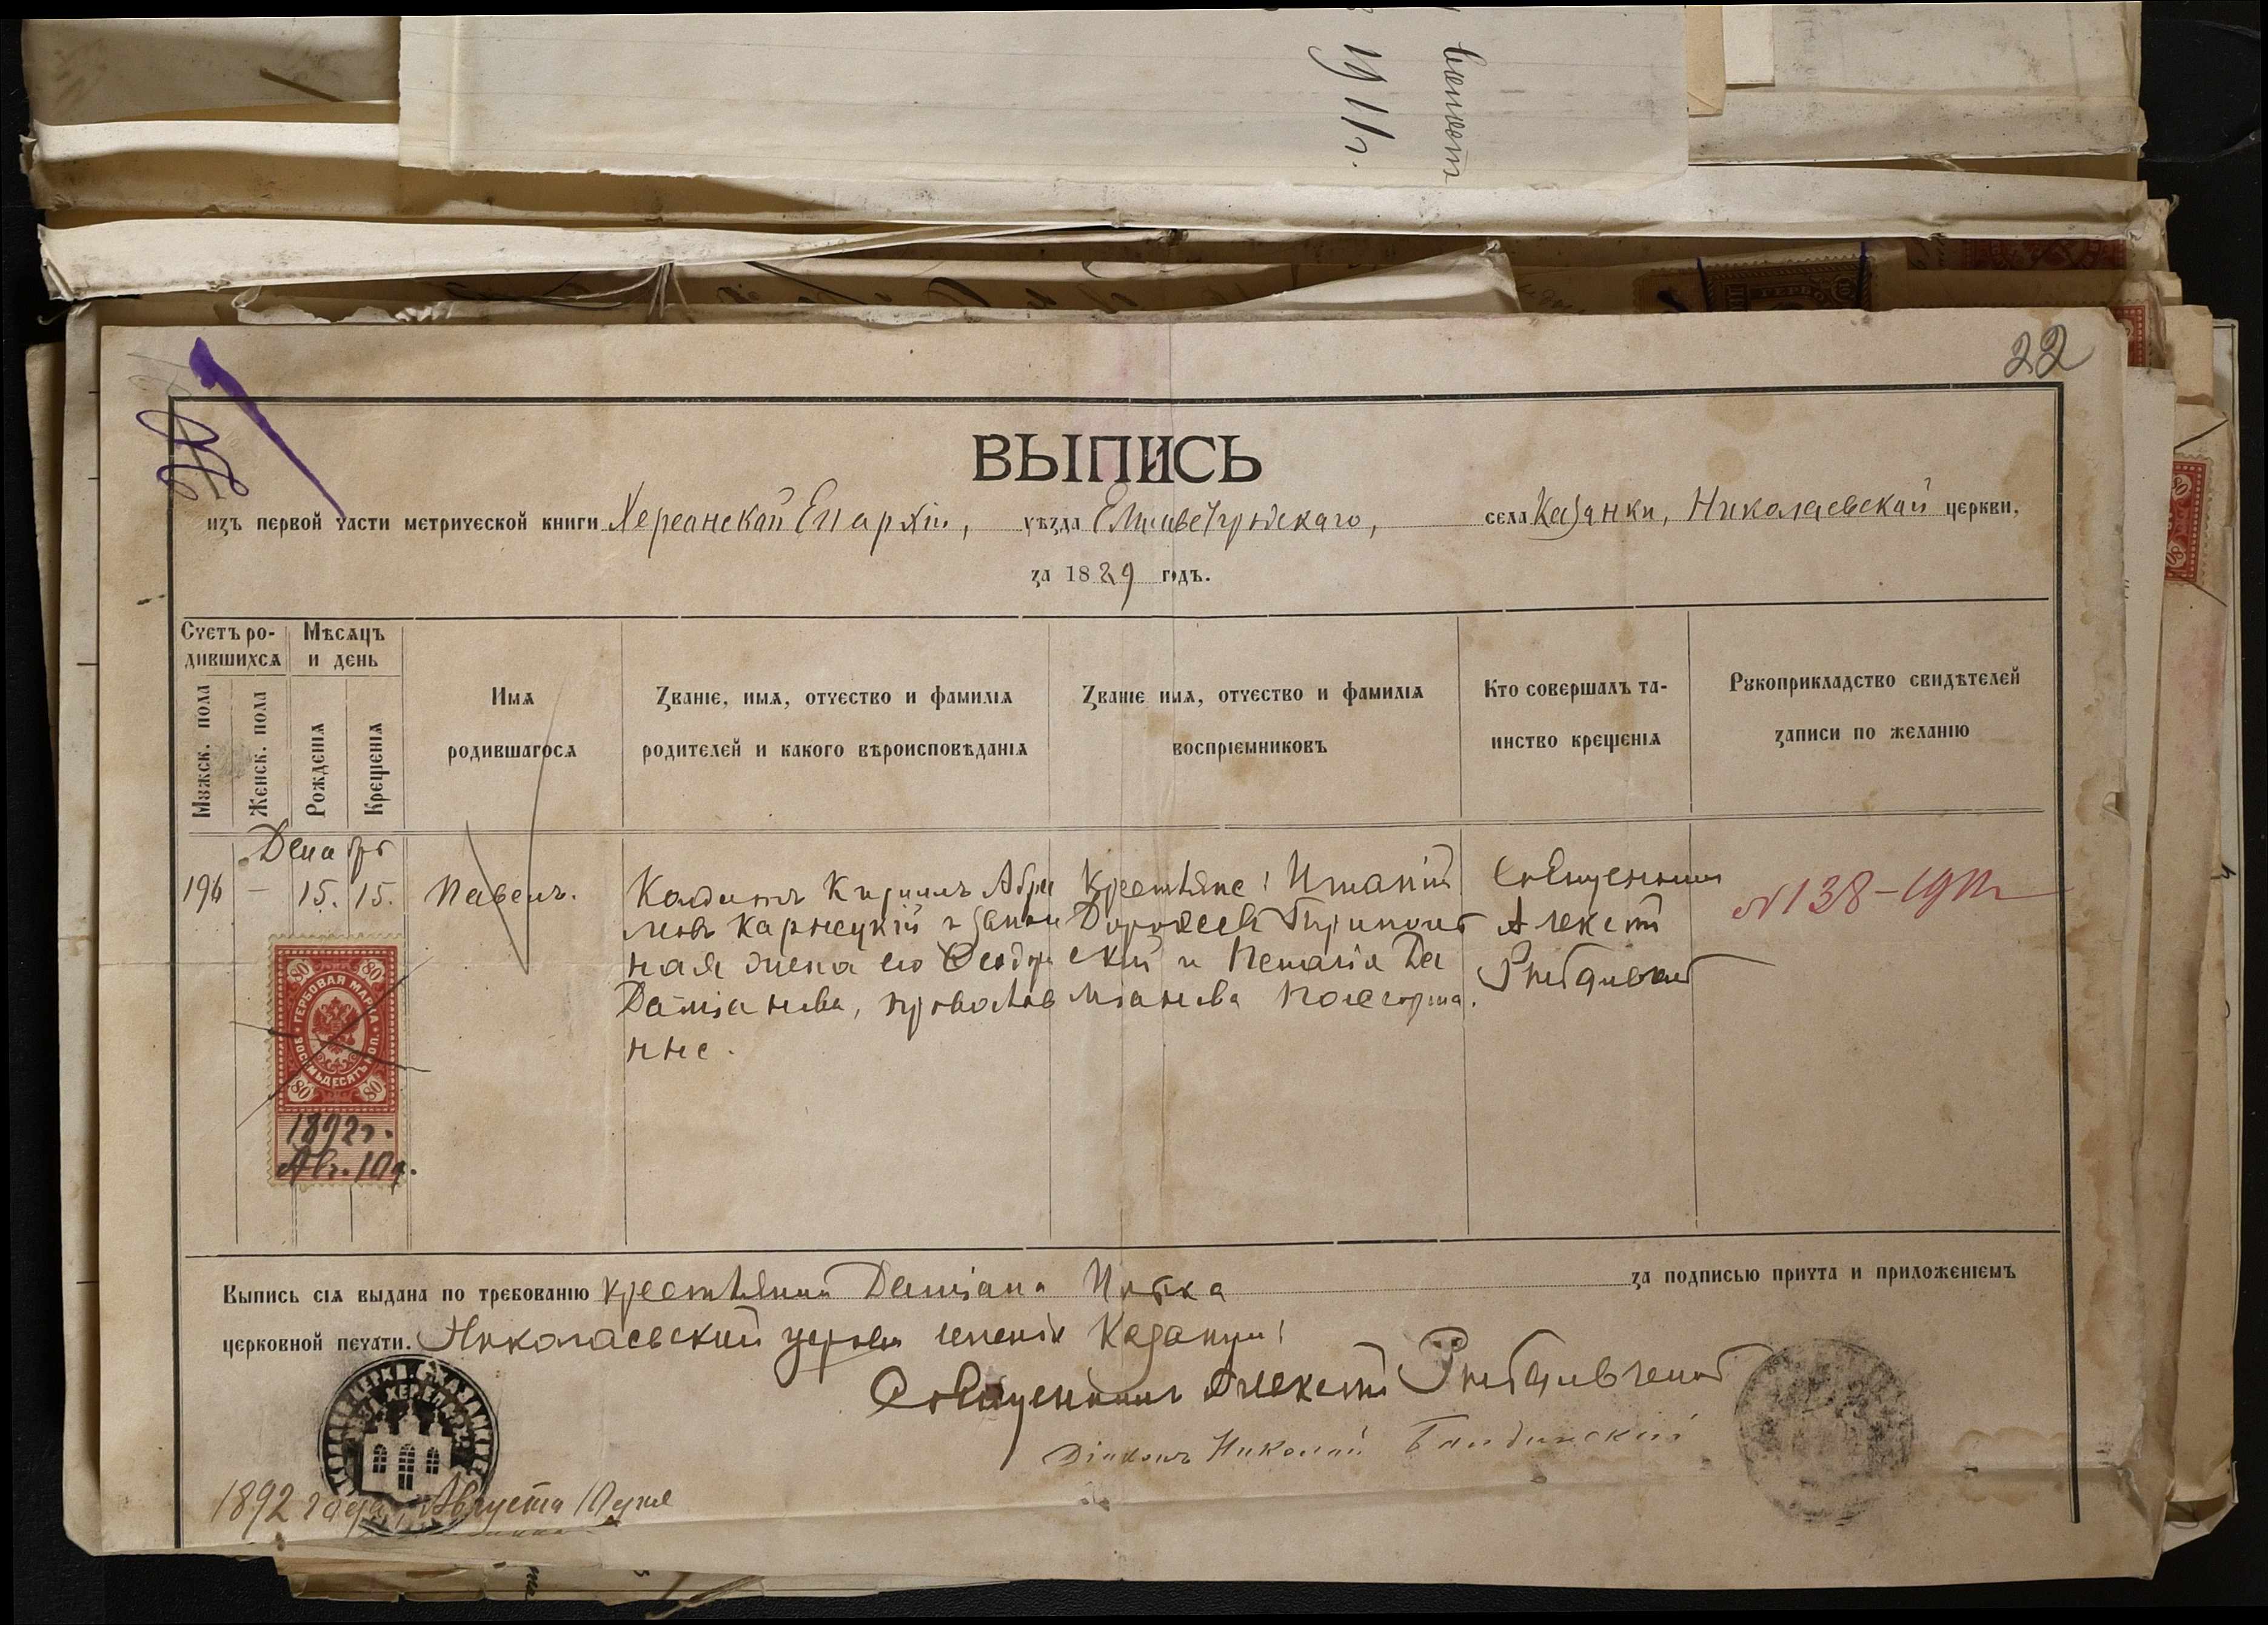 1911 г.
22
ВЫПИСЬ
изъ первой части метрической книги Херсонской Епархіи, уѣзда Елисаветградскаго, села Казанки, Николаевской церкви,
за 1889 годъ.
Счетъ родившихся
Мужск. пола
Женск. пола
Мѣсяцъ и день
Рожденія
Крещенія
Имя родившагося
Званіе, имя, отчество и фамилія родителей и какого вѣроисповѣданія
Званіе имя, отчество и фамилія воспріемниковъ
Кто совершалъ таинство крещенія
Рукоприкладство свидѣтелей записи по желанію
Декабрь
196 — 15. 15.
Павелъ.
Кирилъ Абра
мовъ Карнецкій и закон
ная жена его Ѳеодор
Даміанова, православ
ные.
Крестьяне: Игнатій
Дороѳеевъ
скій и Пелагія Да
міанова
Священникъ
Алексій
№ 138-1911г
80 80
ГЕРБОВАЯ МАРКА
ВОСЕМЬДЕСЯТЪ КОП.
80 80
1892 г.
Авг. 10 д.
Выпись сія выдана по требованію крестьянина Даміана за подписью причта и приложеніемъ
церковной печати. Николаевской церкви селенія Казанки:
Священникъ Алексій
Діаконъ Николай
1892 года, Августа 10 дня